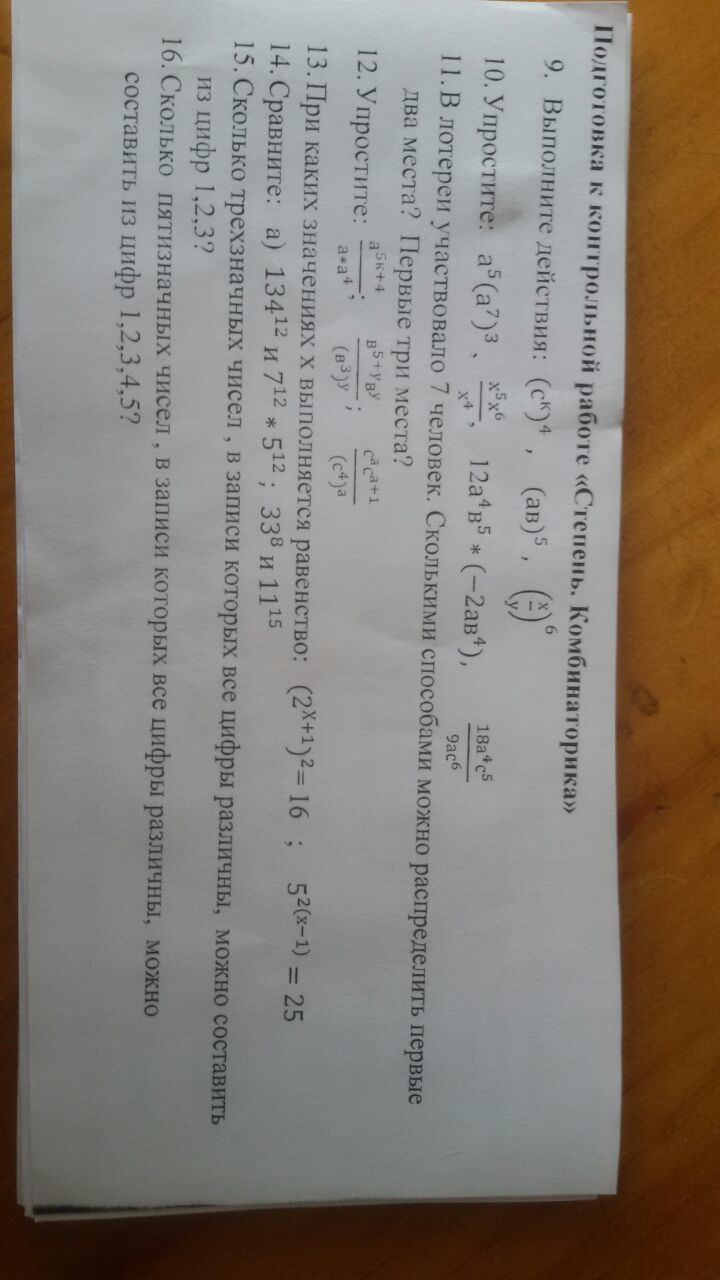 Подготовка к контрольной работе «Степень. Комбинаторика»
9. Выполните действия: (cᴷ)⁴ , (ав)⁵ , (x/y)⁶
10. Упростите: a⁵(a⁷)³ , x⁵x⁶/x⁴ , 12a⁴в⁵ * (−2ав⁴), 18a⁴c⁵/9ac⁶
11. В лотереи участвовало 7 человек. Сколькими способами можно распределить первые
два места? Первые три места?
12. Упростите: a^(5к+4)/a*a⁴ ; в^(5+y)в^y/(в³)^y ; c^a c^(a+1)/(c⁴)^a
13. При каких значениях x выполняется равенство: (2^(x+1))² = 16 ; 5^(2(x−1)) = 25
14. Сравните: а) 134¹² и 7¹² * 5¹² ; 33⁸ и 11¹⁵
15. Сколько трехзначных чисел , в записи которых все цифры различны, можно составить
из цифр 1,2,3?
16. Сколько пятизначных чисел , в записи которых все цифры различны, можно
составить из цифр 1,2,3,4,5?